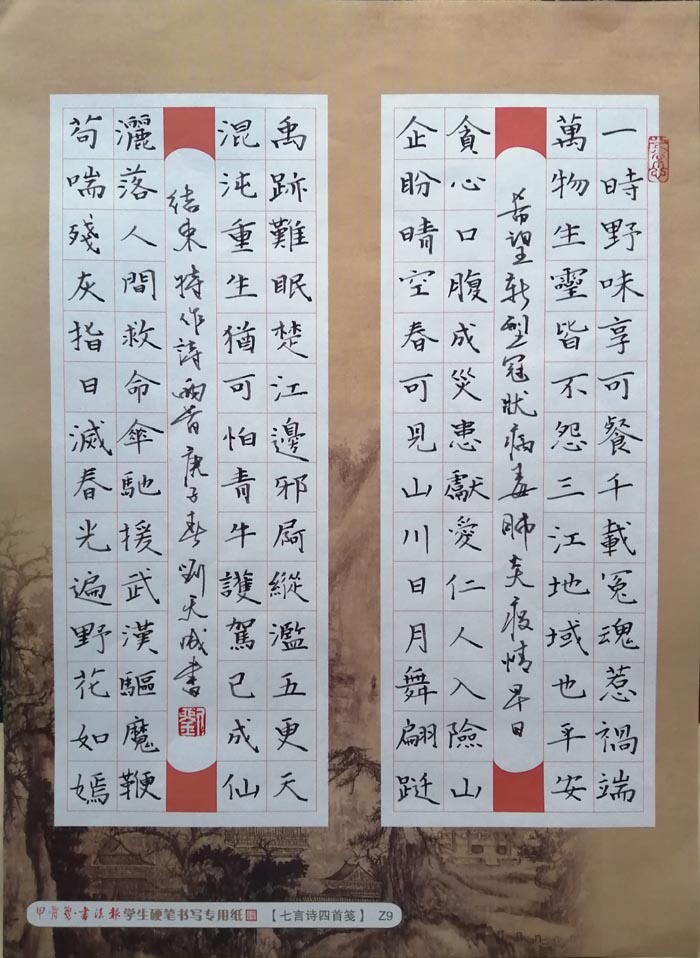 一時野味享可餐千載冤魂惹禍端
萬物生靈皆不怨三江地域也平安
希望新型冠狀病毒肺炎疫情早日
貪心口腹成災患獻愛仁人入險山
企盼晴空春可見山川日月舞翩跹
禹跡難眠楚江邊邪縱濫五更天
混沌重生猶可怕青牛護駕已成仙
結束特作詩兩首庚子春劉天成書
灑落人間救命傘馳援武漢驅魔鞭
苟喘殘灰指日滅春光遍野花如嫣
书法报学生硬笔书写专用纸 【七言诗四首笺】 Z9